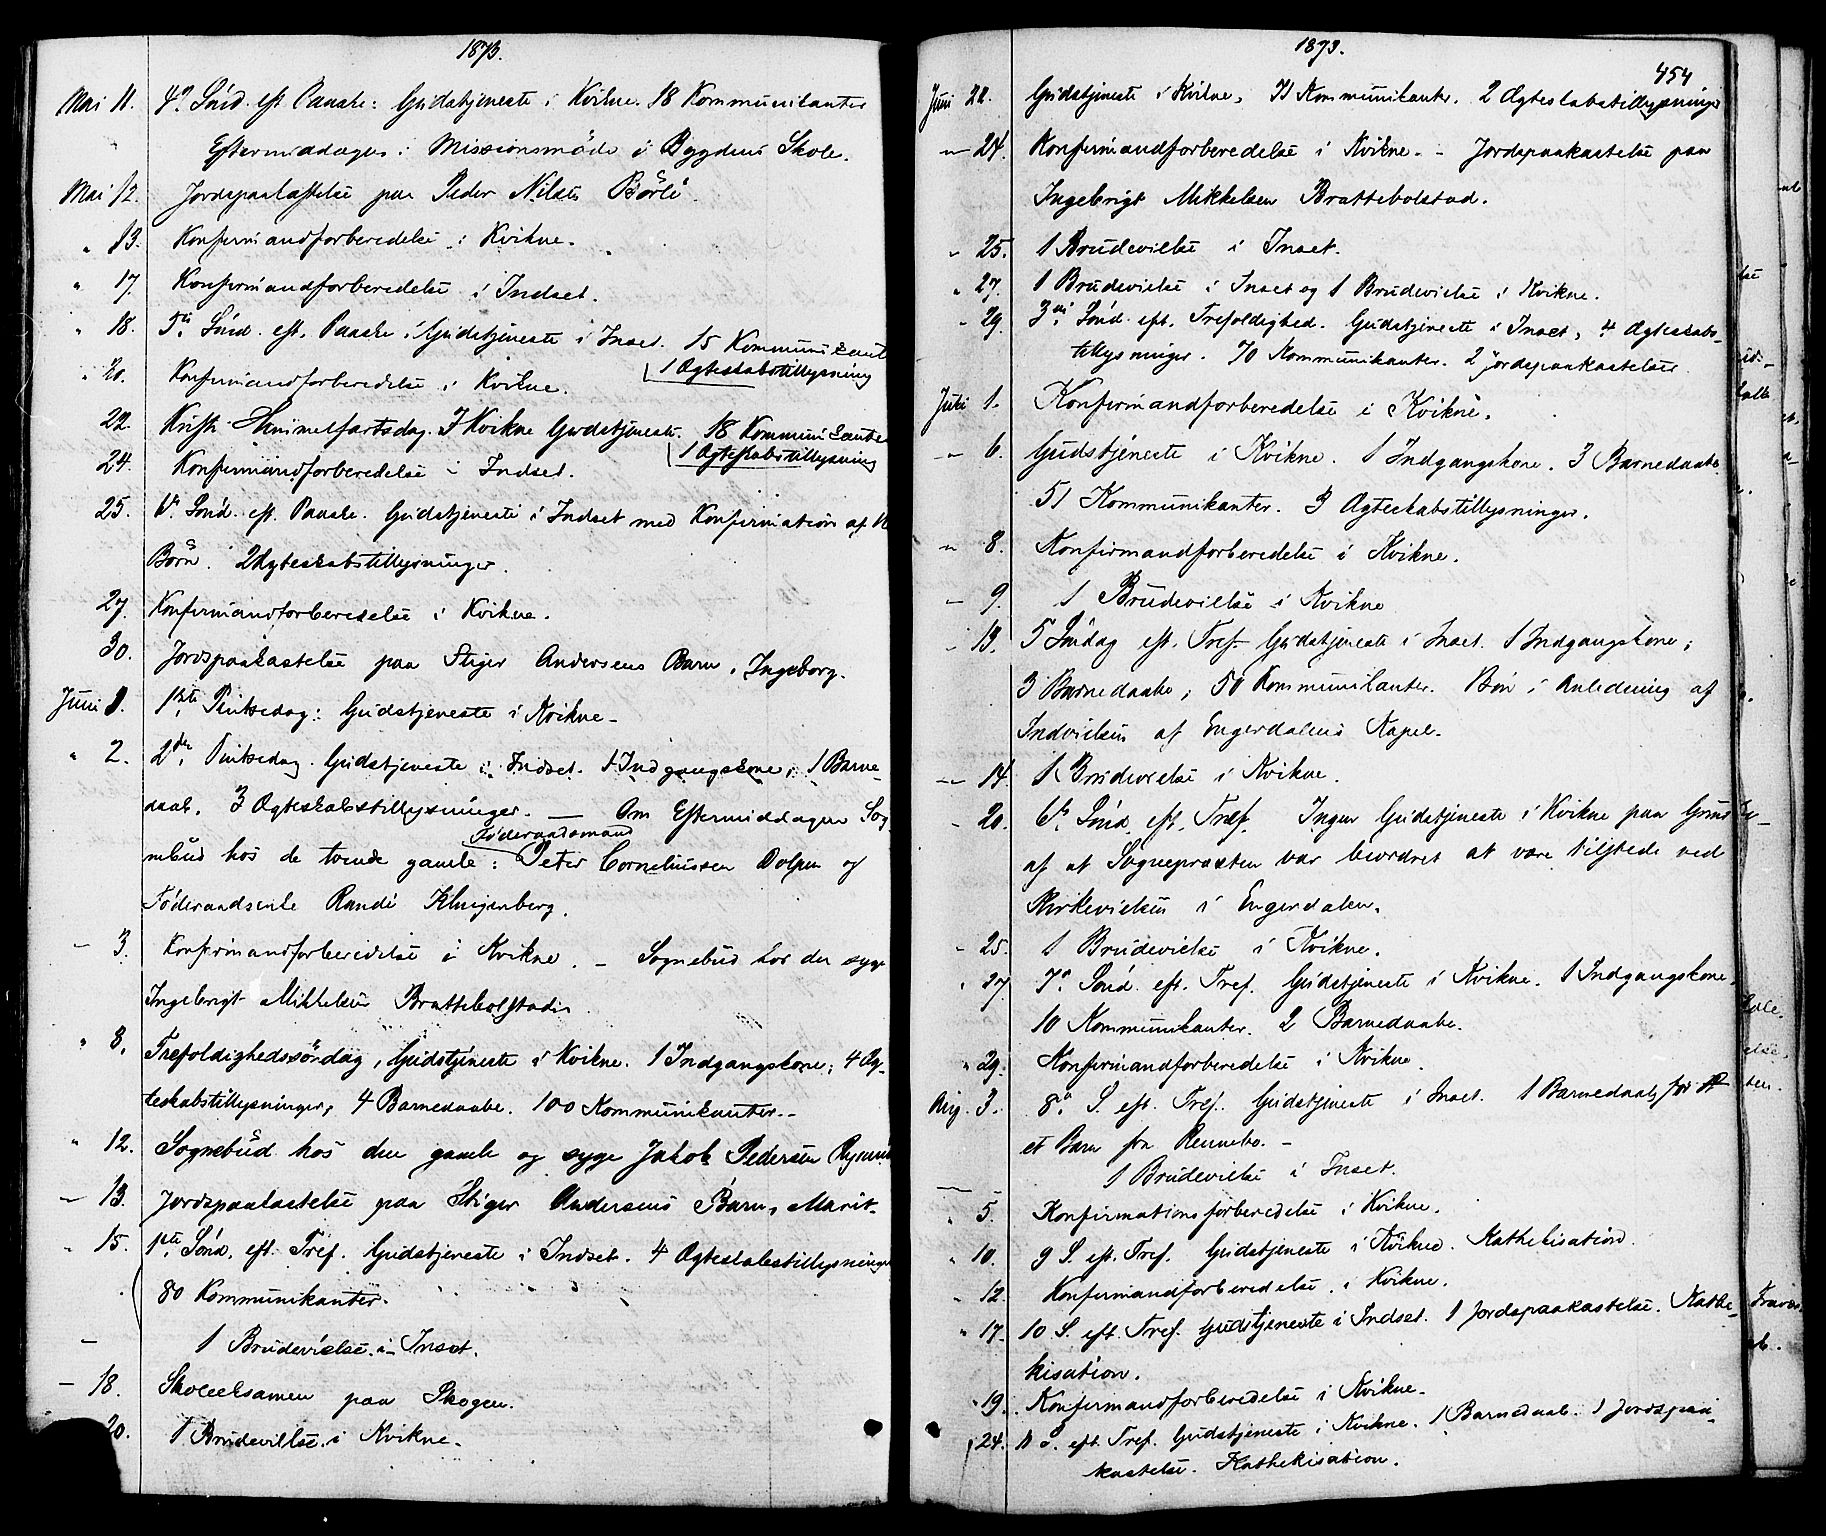 1873.
Mai 11. 4de Sönd. eft. Paaske: Gudstjeneste i Kvikne. 18 Kommunikanter
Eftermiddagen: Missionsmöde i Bygdens Skole.
Mai 12. Jordspaakastelse paa Peder Nilsen Börli.
" 13. Konfirmandforberedelse i Kvikne.
" 17. Konfirmandforberedelse i Indset.
" 18. 5te Sönd. eft. Paaske. Gudstjeneste i Inset. 15 Kommunikant
1 Ægteskabstillysning
" 20. Konfirmandforberedelse i Kvikne.
22. Kristi Himmelfartsdag. I Kvikne Gudstjeneste. 18 Kommunikanter
1 Ægteskabstillysning
24. Konfirmandforberedelse i Indset.
25. 6te Sönd. eft. Paaske. Gudstjeneste i Indset med Konfirmation af
Börn. 2 Ægteskabstillysninger.
27. Konfirmandforberedelse i Kvikne.
30. Jordspaakastelse paa Stiger Andersens Barn, Ingeborg.
Juni 1. 1ste Pintsedag: Gudstjeneste i Kvikne.
" 2. 2den Pintsedag. Gudstjeneste i Indset. 1 Indgangskone, 1 Barne-
daab. 3 Ægteskabstillysninger. — Om Eftermiddagen Sog-
Föderaadsmand
nebud hos de tvende gamle: Peter Corneliussen Dolpen og
Föderaadsenke Randi Klingenberg.
— 3. Konfirmandforberedelse i Kvikne. — Sognebud hos den syge
Ingebrigt Mikkelsen Brattebolstad.
" 8. Trefoldighedssöndag, Gudstjeneste i Kvikne. 1 Indgangskone; 4 Æg-
teskabstillysninger, 4 Barnedaabe. 100 Kommunikanter.
" 12. Sognebud hos den gamle og syge Jakob Pedersen
— 13. Jordspaakastelse paa Stiger Andersens Barn, Marit.
" 15. 1ste Sönd. eft. Tref. Gudstjeneste i Indset. 4 Ægteskabstillysninger
80 Kommunikanter.
— 1 Brudevielse i Inset.
— 18. Skoleeksamen paa Skogen.
20. 1 Brudevielse i Kvikne.
1873.
454
Juni 22. Gudstjeneste i Kvikne, Kommunikanter. 2 Ægteskabstillysninger
— 24. Konfirmandforberedelse i Kvikne. — Jordspaakastelse paa
Ingebrigt Mikkelsen Brattebolstad.
" 25. 1 Brudevielse i Inset.
" 27. 1 Brudevielse i Inset og 1 Brudevielse i Kvikne.
" 29. 3die Sönd. eft. Trefoldighed. Gudstjeneste i Inset, 4 Ægteskabs-
tillysninger. 70 Kommunikanter. 2 Jordspaakastelser.
Juli 1. Konfirmandforberedelse i Kvikne.
— 6. Gudstjeneste i Kvikne. 1 Indgangskone. 3 Barnedaabe
51 Kommunikanter. 3 Ægteskabstillysninger.
" 8. Konfirmandforberedelse i Kvikne.
— 9. 1 Brudevielse i Kvikne
— 13. 5 Söndag eft. Tref. Gudstjeneste i Inset. 1 Indgangskone;
3 Barnedaabe; 50 Kommunikanter. Bön i Anledning af
Indvielsen af Engerdalens Kapel.
— 14. 1 Brudevielse i Kvikne.
— 20. 6te Sönd. eft. Tref. Ingen Gudstjeneste i Kvikne paa Grund
af at Sognepræsten var beordret at være tilstede ved
Kirkevielsen i Engerdalen.
" 25. 1 Brudevielse i Kvikne.
" 27. 7de Sönd. eft. Tref. Gudstjeneste i Kvikne. 1 Indgangskone.
10 Kommunikanter. 2 Barnedaabe.
" 29. Konfirmandforberedelse i Kvikne
Aug. 3. 8de S. eft. Tref. Gudstjeneste i Inset. 1 Barnedaab, for
et Barn fra Rennebo. —
— 1 Brudevielse i Inset.
" 5. Konfirmationsforberedelse i Kvikne.
" 10. 9 S. eft. Tref. Gudstjeneste i Kvikne. Kathekisation.
" 12 Konfirmandforberedelse i Kvikne.
" 17. 10 S. eft. Tref. Gudstjeneste i Indset. 1 Jordspaakastelse. Kathe-
kisation.
" 19. Konfirmandforberedelse i Kvikne.
" 24. 11 S. eft. Tref. Gudstjeneste i Kvikne. 1 Barnedaab. 1 Jordspaa-
kastelse. Kathekisation.